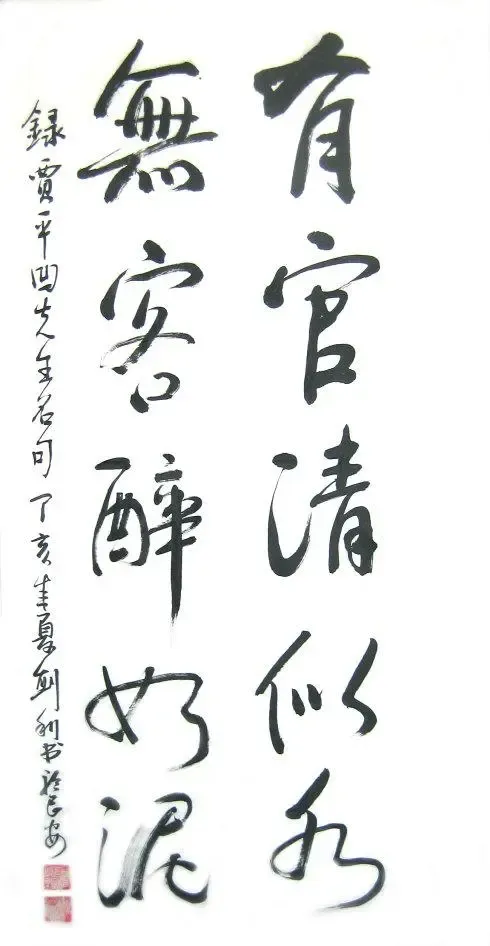 有官清似水
無客醉如泥
録賈平凹先生名句丁亥年夏剑利书於長安